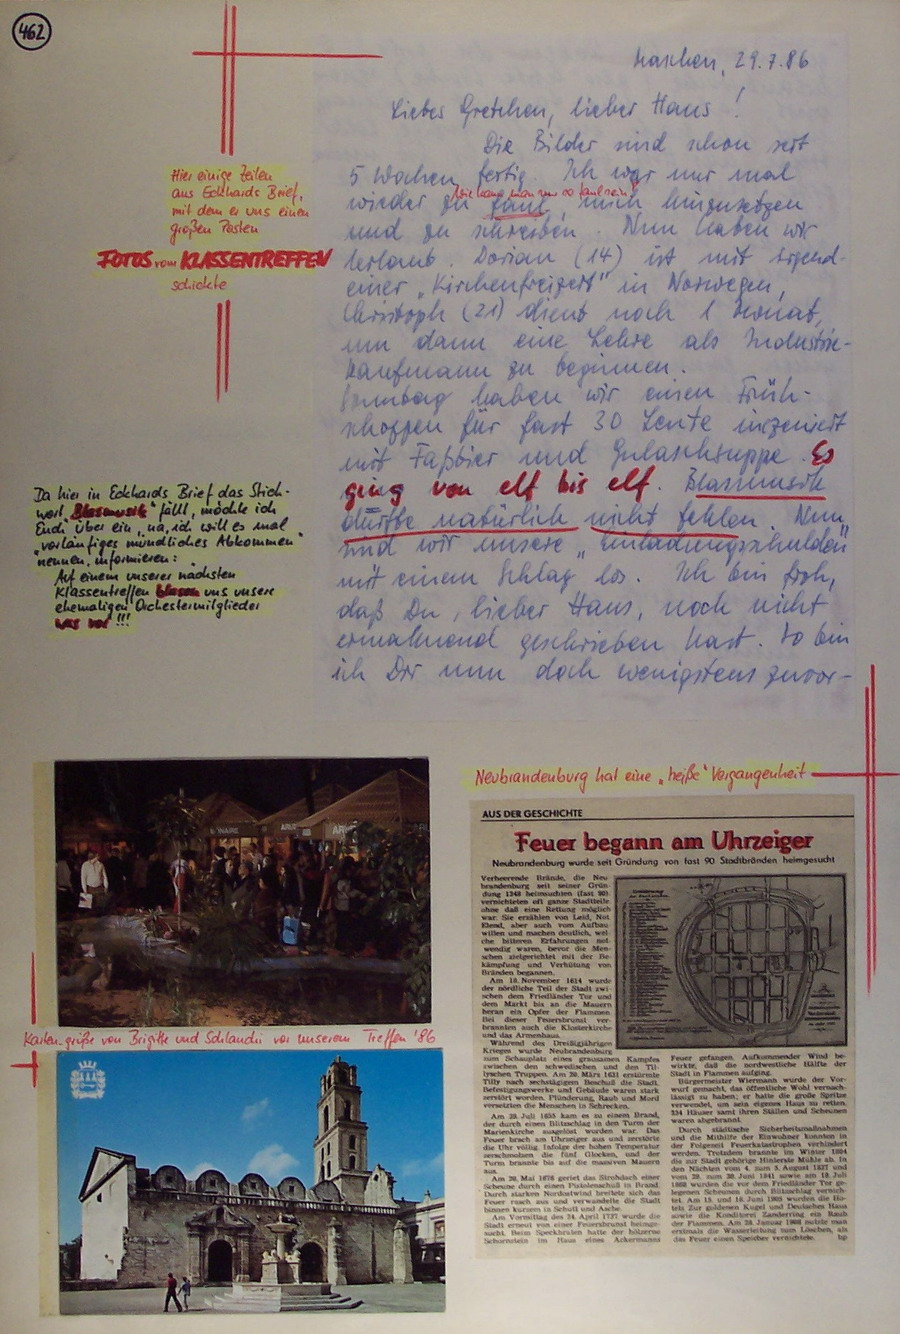 462
Maschen, 29.7.86
Liebes Gretchen, lieber Hans!
Die Bilder sind schon seit
5 Wochen fertig. Ich war nur mal
wieder zu faul, mich hinzusetzen
und zu schreiben. Nun haben wir
Urlaub. Dorian (14) ist mit irgend-
einer „Kirchenfreizeit" in Norwegen,
Christoph (21) dient noch 1 Monat,
um dann eine Lehre als Industrie-
kaufmann zu beginnen.
Sonntag haben wir einen Früh-
schoppen für fast 30 Leute inszeniert
mit Faßbier und Gulaschsuppe. Es
ging von elf bis elf. Blasmusik
durfte natürlich nicht fehlen. Nun
sind wir unsere „Einladungsschulden"
mit einem Schlag los. Ich bin froh,
daß Du, lieber Hans, noch nicht
ermahnend geschrieben hast. So bin
ich Dir nun doch wenigstens zuvor-
Hier einige Zeilen
aus Eckhards Brief,
mit dem er uns einen
großen Posten
FOTOS vom KLASSENTREFFEN
schickte
Da hier in Eckhards Brief das Stich-
wort „Blasmusik" fällt, möchte ich
Euch über ein, na, ich will es mal
„vorläufiges mündliches Abkommen"
nennen, informieren:
Auf einem unserer nächsten
Klassentreffen blasen uns unsere
ehemaligen Orchestermitglieder
was vor!!!
Karten-grüße von Brigitte und Schlandi vor unserem Treffen '86
Neubrandenburg hat eine „heiße" Vergangenheit
AUS DER GESCHICHTE
Feuer begann am Uhrzeiger
Neubrandenburg wurde seit Gründung von fast 90 Stadtbränden heimgesucht
Verheerende Brände, die Neu-
brandenburg seit seiner Grün-
dung 1248 heimsuchten (fast 90)
vernichteten oft ganze Stadtteile,
ohne daß eine Rettung möglich
war. Sie erzählen von Leid, Not
Elend, aber auch vom Aufbau
willen und machen deutlich, wel-
che bitteren Erfahrungen not-
wendig waren, bevor die Men-
schen zielgerichtet mit der Be-
kämpfung und Verhütung von
Bränden begannen.
Am 18. November 1614 wurde
der nördliche Teil der Stadt zwi-
schen dem Friedländer Tor und
dem Markt bis an die Mauern
heran ein Opfer der Flammen.
Bei dieser Feuersbrunst ver-
brannten auch die Klosterkirche
und das Armenhaus.
Während des Dreißigjährigen
Krieges wurde Neubrandenburg
zum Schauplatz eines grausamen Kampfes
zwischen den schwedischen und den Til-
lyschen Truppen. Am 30. März 1631 erstürmte
Tilly nach sechstägigem Beschuß die Stadt.
Befestigungswerke und Gebäude waren stark
zerstört worden. Plünderung, Raub und Mord
versetzten die Menschen in Schrecken.
Am 29. Juli 1655 kam es zu einem Brand,
der durch einen Blitzschlag in den Turm der
Marienkirche ausgelöst worden war. Das
Feuer brach am Uhrzeiger aus und zerstörte
die Uhr völlig. Infolge der hohen Temperatur
zerschmolzen die fünf Glocken, und der
Turm brannte bis auf die massiven Mauern
aus.
Am 20. Mai 1676 geriet das Strohdach einer
Scheune durch einen Pistolenschuß in Brand.
Durch starken Nordostwind breitete sich das
Feuer rasch aus und verwandelte die Stadt
binnen kurzem in Schutt und Asche.
Am Vormittag des 24. April 1737 wurde die
Stadt erneut von einer Feuersbrunst heimge-
sucht. Beim Speckbraten hatte der hölzerne
Schornstein im Haus eines Ackermanns
Feuer gefangen. Aufkommender Wind be-
wirkte, daß die nordwestliche Hälfte der
Stadt in Flammen aufging.
Bürgermeister Wiermann wurde der Vor-
wurf gemacht, das öffentliche Wohl vernach-
lässigt zu haben; er hatte die große Spritze
verwendet, um sein eigenes Haus zu retten.
234 Häuser samt ihren Ställen und Scheunen
waren abgebrannt.
Durch städtische Sicherheitsmaßnahmen
und die Mithilfe der Einwohner konnten in
der Folgezeit Feuerkatastrophen verhindert
werden. Trotzdem brannte im Winter 1804
die zur Stadt gehörige Hinterste Mühle ab. In
den Nächten vom 4. zum 5. August 1837 und